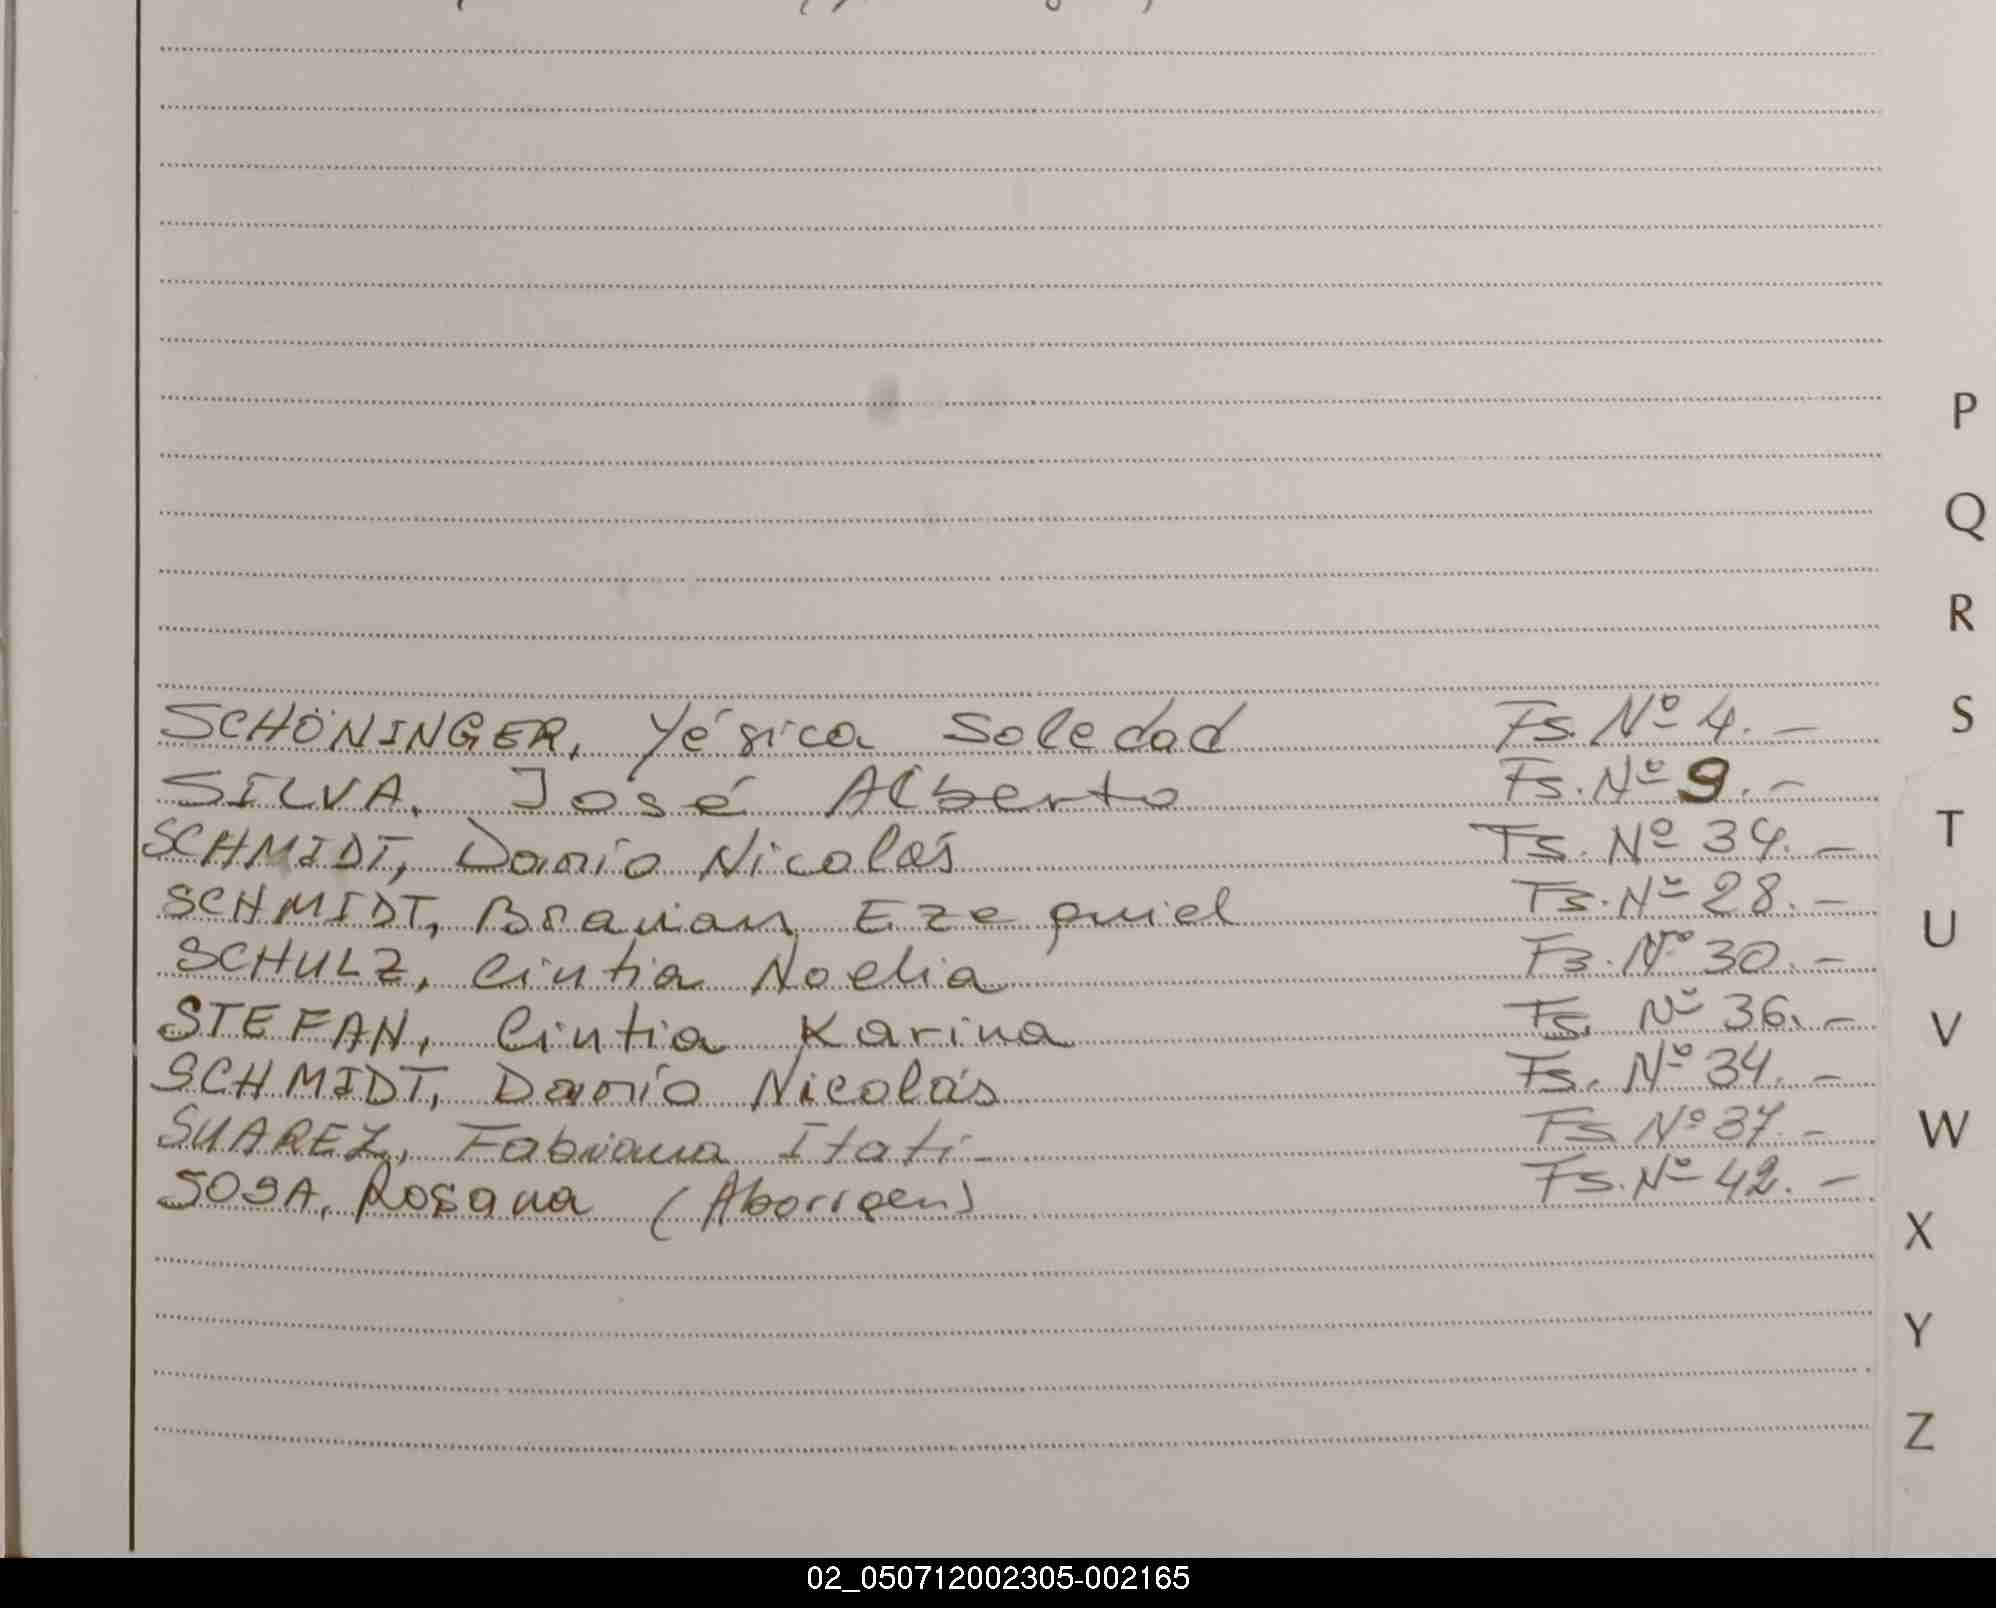 P
Q
R
SCHÖNINGER, Yésica Soledad Fs. Nº 4. — S
SILVA, José Alberto Fs. Nº 9. —
SCHMIDT, Darío Nicolás Fs. Nº 34. — T
SCHMIDT, Braian Ezequiel Fs. Nº 28. — U
SCHULZ, Cintia Noelia Fs. Nº 30. —
STEFAN, Cintia Karina Fs. Nº 36. — V
SCHMIDT, Darío Nicolás Fs. Nº 34. —
SUAREZ, Fabiana Itatí — Fs Nº 37. — W
SOSA, Rosana (Aborigen) Fs. Nº 42. —
X
Y
Z
02_050712002305-002165